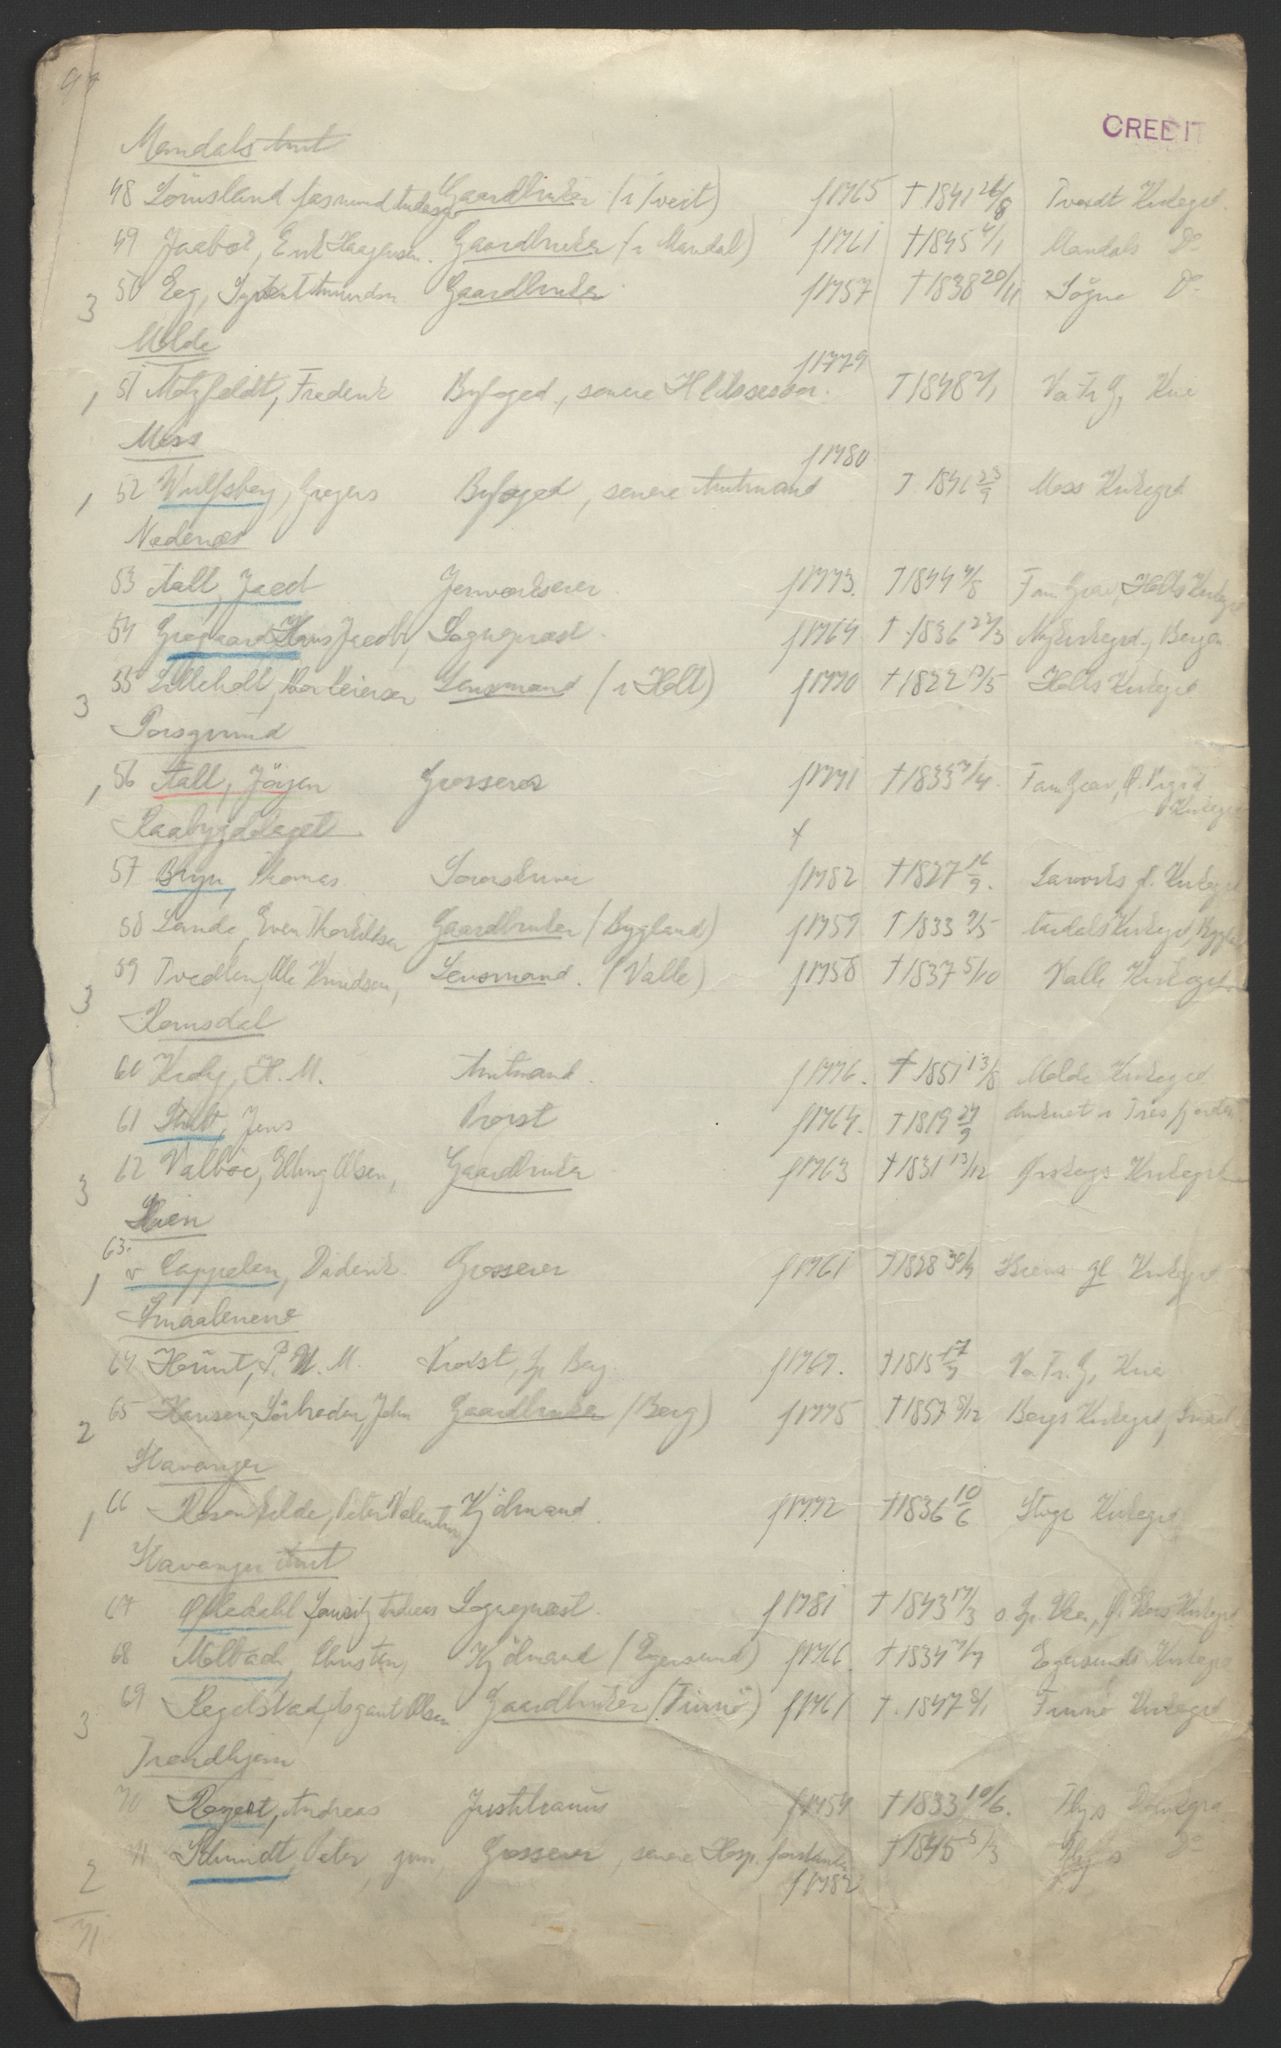 CREDIT
Mandals Amt
48 Lömsland, Gaardbruker (i Tveit) f 1765 † 1841 26/8 Tveidt Kirkegrd.
49 Jaabæk, Erik Haagensen. Gaardbruker (i Mandal) f 1761 † 1845 4/1 Mandals Do
3 50 Eeg, Syvert Amundsn Gaardbruker f 1757 † 1838 20/11 Sögne Do
Molde f 1779
1 51 Motzfeldt, Frederik Byfoged, senere H Assessor. † 1848 2/1 Va Fr G, Kria
Moss f 1780.
1 52 Wulfsberg, Gregers Byfoged, senere Amtmand † 1846 23/9 Moss Kirkegrd
Nedenæs
53 Aall, Jacob Jernverkseier f 1773. † 1844 4/8 Fam Grav, Holts Kirkegrd
54 Grøgaard Hans Jacob, Sogneprest. f 1764 † 1836 22/3 Nykirkegrd, Bergen
3 55 Lilleholt, Thor Reiersen Lensmand (i Holt) f 1770 † 1822 /5 Holts Kirkegrd
Porsgrund
1 56 Aall, Jörgen Grosserer f 1771 † 1833 7/4. Fam Grav, Ø. Kirkegrd
Raabygdelaget
57 Bryn, Thomas Sorenskriver f 1782 † 1827 16/9. Larviks gl. Kirkegrd
58 Lande, Even Thorkilsen Gaardbruker (Bygland) f 1759 † 1833 9/5 Aardals Kirkegrd, Bygland
3 59 Tvedten, Ole Knudsen, Lensmand. (Valle) f 1758 † 1837 5/10 Valle Kirkegrd
Romsdal
60 Krohg, H. M. Amtmand. f 1776. † 1851 13/8 Molde Kirkegrd
61 Stub, Jens Provst f 1764. † 1819 24/9 druknet i Tresfjorden
3 62 Valböe, Elling Olsen, Gaardbruker f 1763 † 1831 13/12 Ørskogs Kirkegrd
Skien
1 63. v Cappelen, Diderik Grosserer f 1761 † 1828 30/4 Skiens gl Kirkegrd
Smaalenene
64 Hount, P. H. M. Provst, Sp Berg f 1769. † 1815 17/9 Va Fr. G, Kria
2 65 Hansen, Sörbröden, John Gaardbruker (Berg) f 1775 † 1857 8/12 Bergs Kirkegrd,
Stavanger
1 66 Rosenkilde, Peter Valentin Kjömand. f 1772 † 1836 10/6 Kirkegrd
Stavanger Amt
67 Oftedahl Lauritz Andreas Sogneprest. f 1781 † 1843 17/3 Kirkegrd
68 Molbach, Christen, Kjömand (Egersund) f 1766 † 1834 Egersunds Kirkegrd
3 69 Regelstad, Asgaut Olsen Gaardbruker (Finnö) f 1761 † 1847 8/1 Finnö Kirkegrd
Trondhjem
70 Rogert, Andreas Justitiarius f 1754 † 1833 10/6. Thjs Domkgrd
2 71 Schmidt, Peter, jun Grosserer, senere Hosp. forstander f 1782 † 1845 5/3 Thjs Do
71